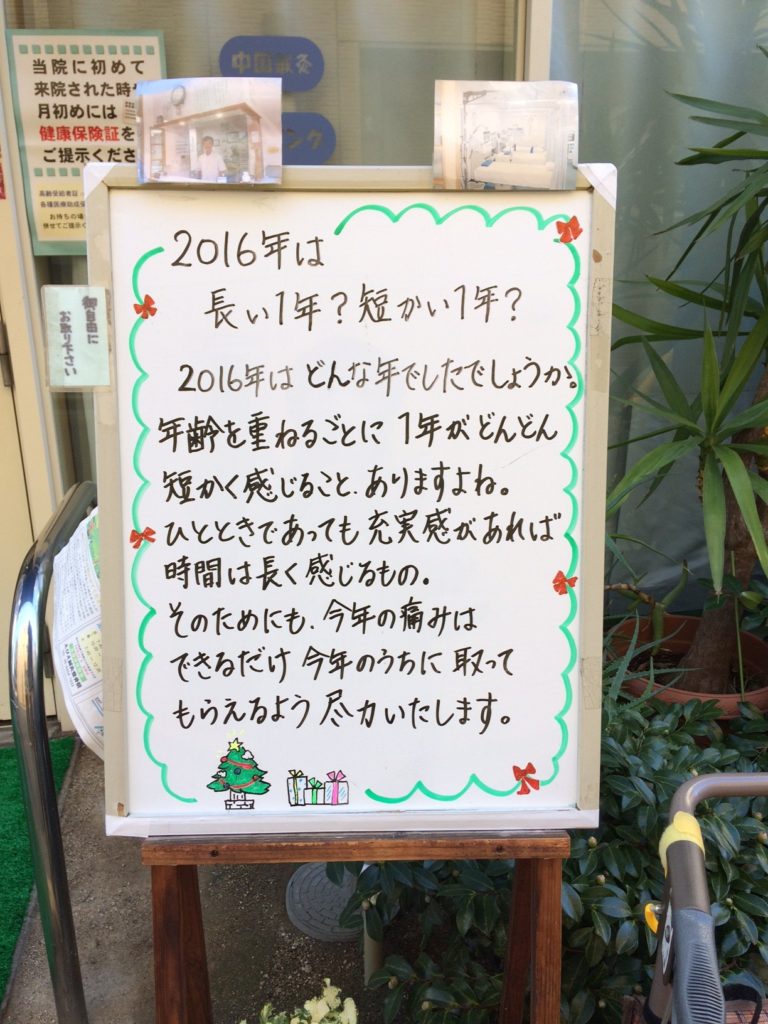 当院に初めて
来院された時や
月初めには
健康保険証を
ご提示くださ
高齢受給者証
各種医療助成受
お持ちの場
併せてご提示く
中国鍼灸
ング
御自由に
お取り下さい
2016年は
長い1年?短かい1年?
2016年は どんな年でしたでしょうか。
年齢を重ねるごとに 1年がどんどん
短かく感じること、ありますよね。
ひとときであっても 充実感があれば
時間は長く感じるもの。
そのためにも、今年の痛みは
できるだけ 今年のうちに 取って
もらえるよう 尽力いたします。